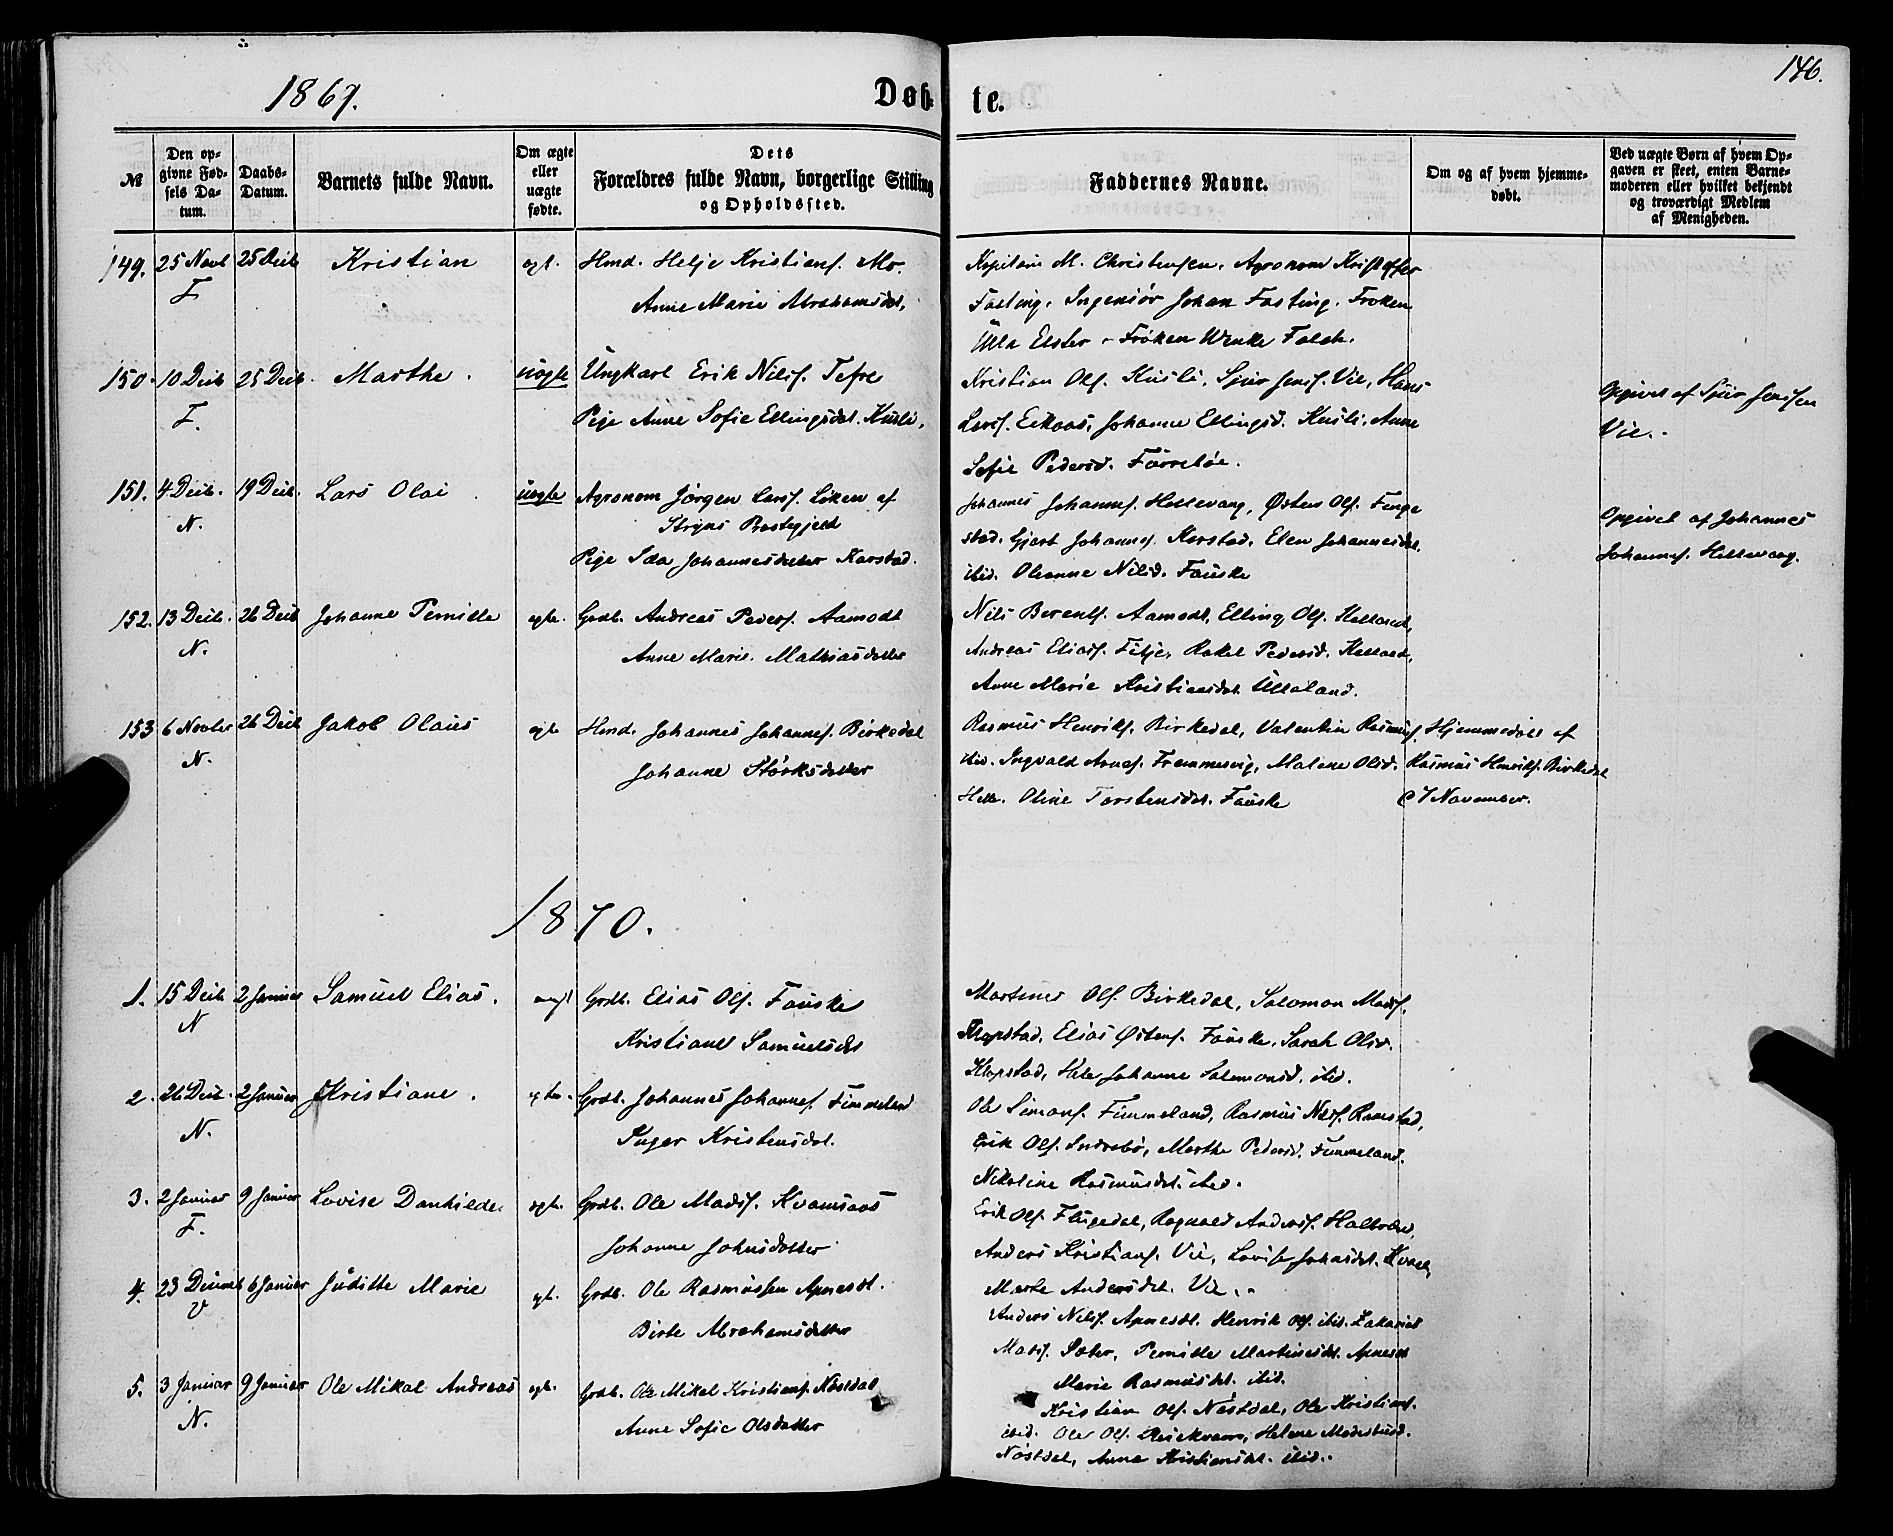 146.
1869.
Døb-te.
№
Den opgivne Fødsels Datum.
Daabs-Datum.
Barnets fulde Navn.
Om ægte eller uægte fødte.
Dets Forældres fulde Navn, borgerlige Stilling og Opholdssted.
Faddernes Navne.
Om og af hvem hjemmedøbt.
Ved uægte Børn af hvem Opgaven er skeet, enten Barnemoderen eller hvilket bekjendt og troværdigt Medlem af Menigheden.
149. 25 Novb 25 Decb Kristian egt. Hmd. Helje Kristians. Mo.
F Anne Marie Abrahamsdat.
Kapitain M. Christensen, Agronom Kristoffer
Fasting, Ingeniør Johan Fasting, Frøken
Ulla Elster, Frøken Wenke Falch.
150. 10 Decb 25 Decb. Marthe. uægte Ungkarl Erik Nils. Tefre
F. Pige Anne Sofie Ellingsdat. Kusli.
Kristian Ols. Kusli, Sjur Jens. Vie, Hans
Lars. Eikaas, Johanne Ellingsd. Kusli, Anne
Sofie Pedersd. Førreløe.
Opgivet af Sjur Jensen
Vie.
151. 4 Decb. 19 Decb. Lars Olai uegte Agronom Jørgen Lars. Løken af
N. Stryns Præstegjeld
Pige Ida Johannesdatter Karstad.
Johannes Johannes. Hellevang, Østen Ols. Funge
stad, Gjert Johannes. Karstad, Elen Johannesdat.
ibid. Oleanne Nilsd. Fauske
Opgivet af Johannes
Johannes. Hellevang.
152. 13 Decb. 26 Decb Johanne Pernille egte. Grdb. Andreas Peders. Aamodt
N. Anne Marie Mathiasdatter
Nils Berents. Aamodt, Elling Ols. Helland,
Andreas Elias. Fitje, Rakel Pedersd. Helland,
Anne Marie Kristiansdat. Ullaland.
153 6 Novber 26 Decb Jakob Olaus egte Hmd. Johannes Johannes. Birkedal
N. Johanne Størksdatter
Rasmus Henriks. Birkedal, Valentin Rasmus.
ibid. Ingvald Arnes. Fremmersvig, Malene Olsd.
Helle. Oline Torstensdat. Fauske
Hjemmedøbt af
Rasmus Henriks. Birkedal
7 November.
1870.
1. 15 Decb 2 Januar Samuel Elias. egt Grdb. Elias Ols. Fauske
N Kristiane Samuelsdat
Martinus Ols. Birkedal, Salomon Mads.
Klopstad, Elias Østens. Fauske, Sarah Olsd.
Klopstad, Johanne Salomonsd. ibid.
2. 26 Decb. 2 Januar Kristiane. egte. Grdb. Johannes Johannes. Fimmeland
N. Inger Kristensdat.
Ole Simons. Fimmeland, Rasmus Nils. Ramstad,
Erik Ols. Indrebø, Marthe Pedersd. Fimmeland.
Nikoline Rasmusdat. ibid.
3. 2 Januar 9 Januar Lovise Danhilde. egte. Grdb. Ole Mads. Kvamsaas
F. Johanne Johnsdatter
Erik Ols. Flugedal, Ragnald Anders. Halbrænd,
Anders Kristians. Vie, Lovise Johasdat.
Marte Andersdat. Vie.
4. 23 Decemb 6 Januar Juditte Marie egt. Grdb. Ole Rasmussen Apnesdt.
V Birte Abrahamsdatter
Anders Nils. Apnesdt. Henrik Ols. ibid. Zakarias
Mads. Sæter, Pernille Martinusdt. Apnesdt
Marie Rasmusdt. ibid.
5. 3 Januar 9 Januar Ole Mikal Andreas egt. Grdb. Ole Mikal Kristians. Nøstdal
N. Anne Sofie Olsdatter
Kristian Ols. Nøstdal, Ole Kristians.
ibid. Ole Ols. Helene
Nøstdal, Anne Kristiansdat. ibid.